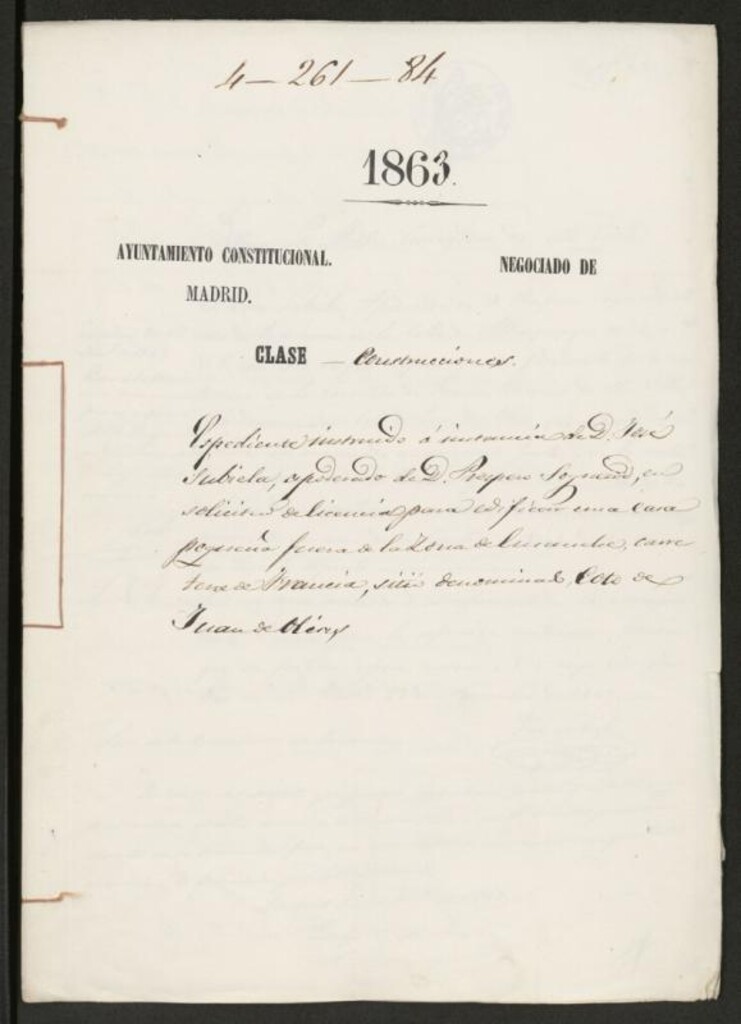 4 - 261 - 84
1863.
AYUNTAMIENTO CONSTITUCIONAL.
MADRID.
NEGOCIADO DE
CLASE - Construcciones.
Espediente instruido á instancia de D. José
Subiela, apoderado de D. Prospero, en
solicitud de licencia para edificar una casa
pequeña fuera de la Zona de Ensanche, carre
tera de Francia, sitio denominado Coto de
Juan de